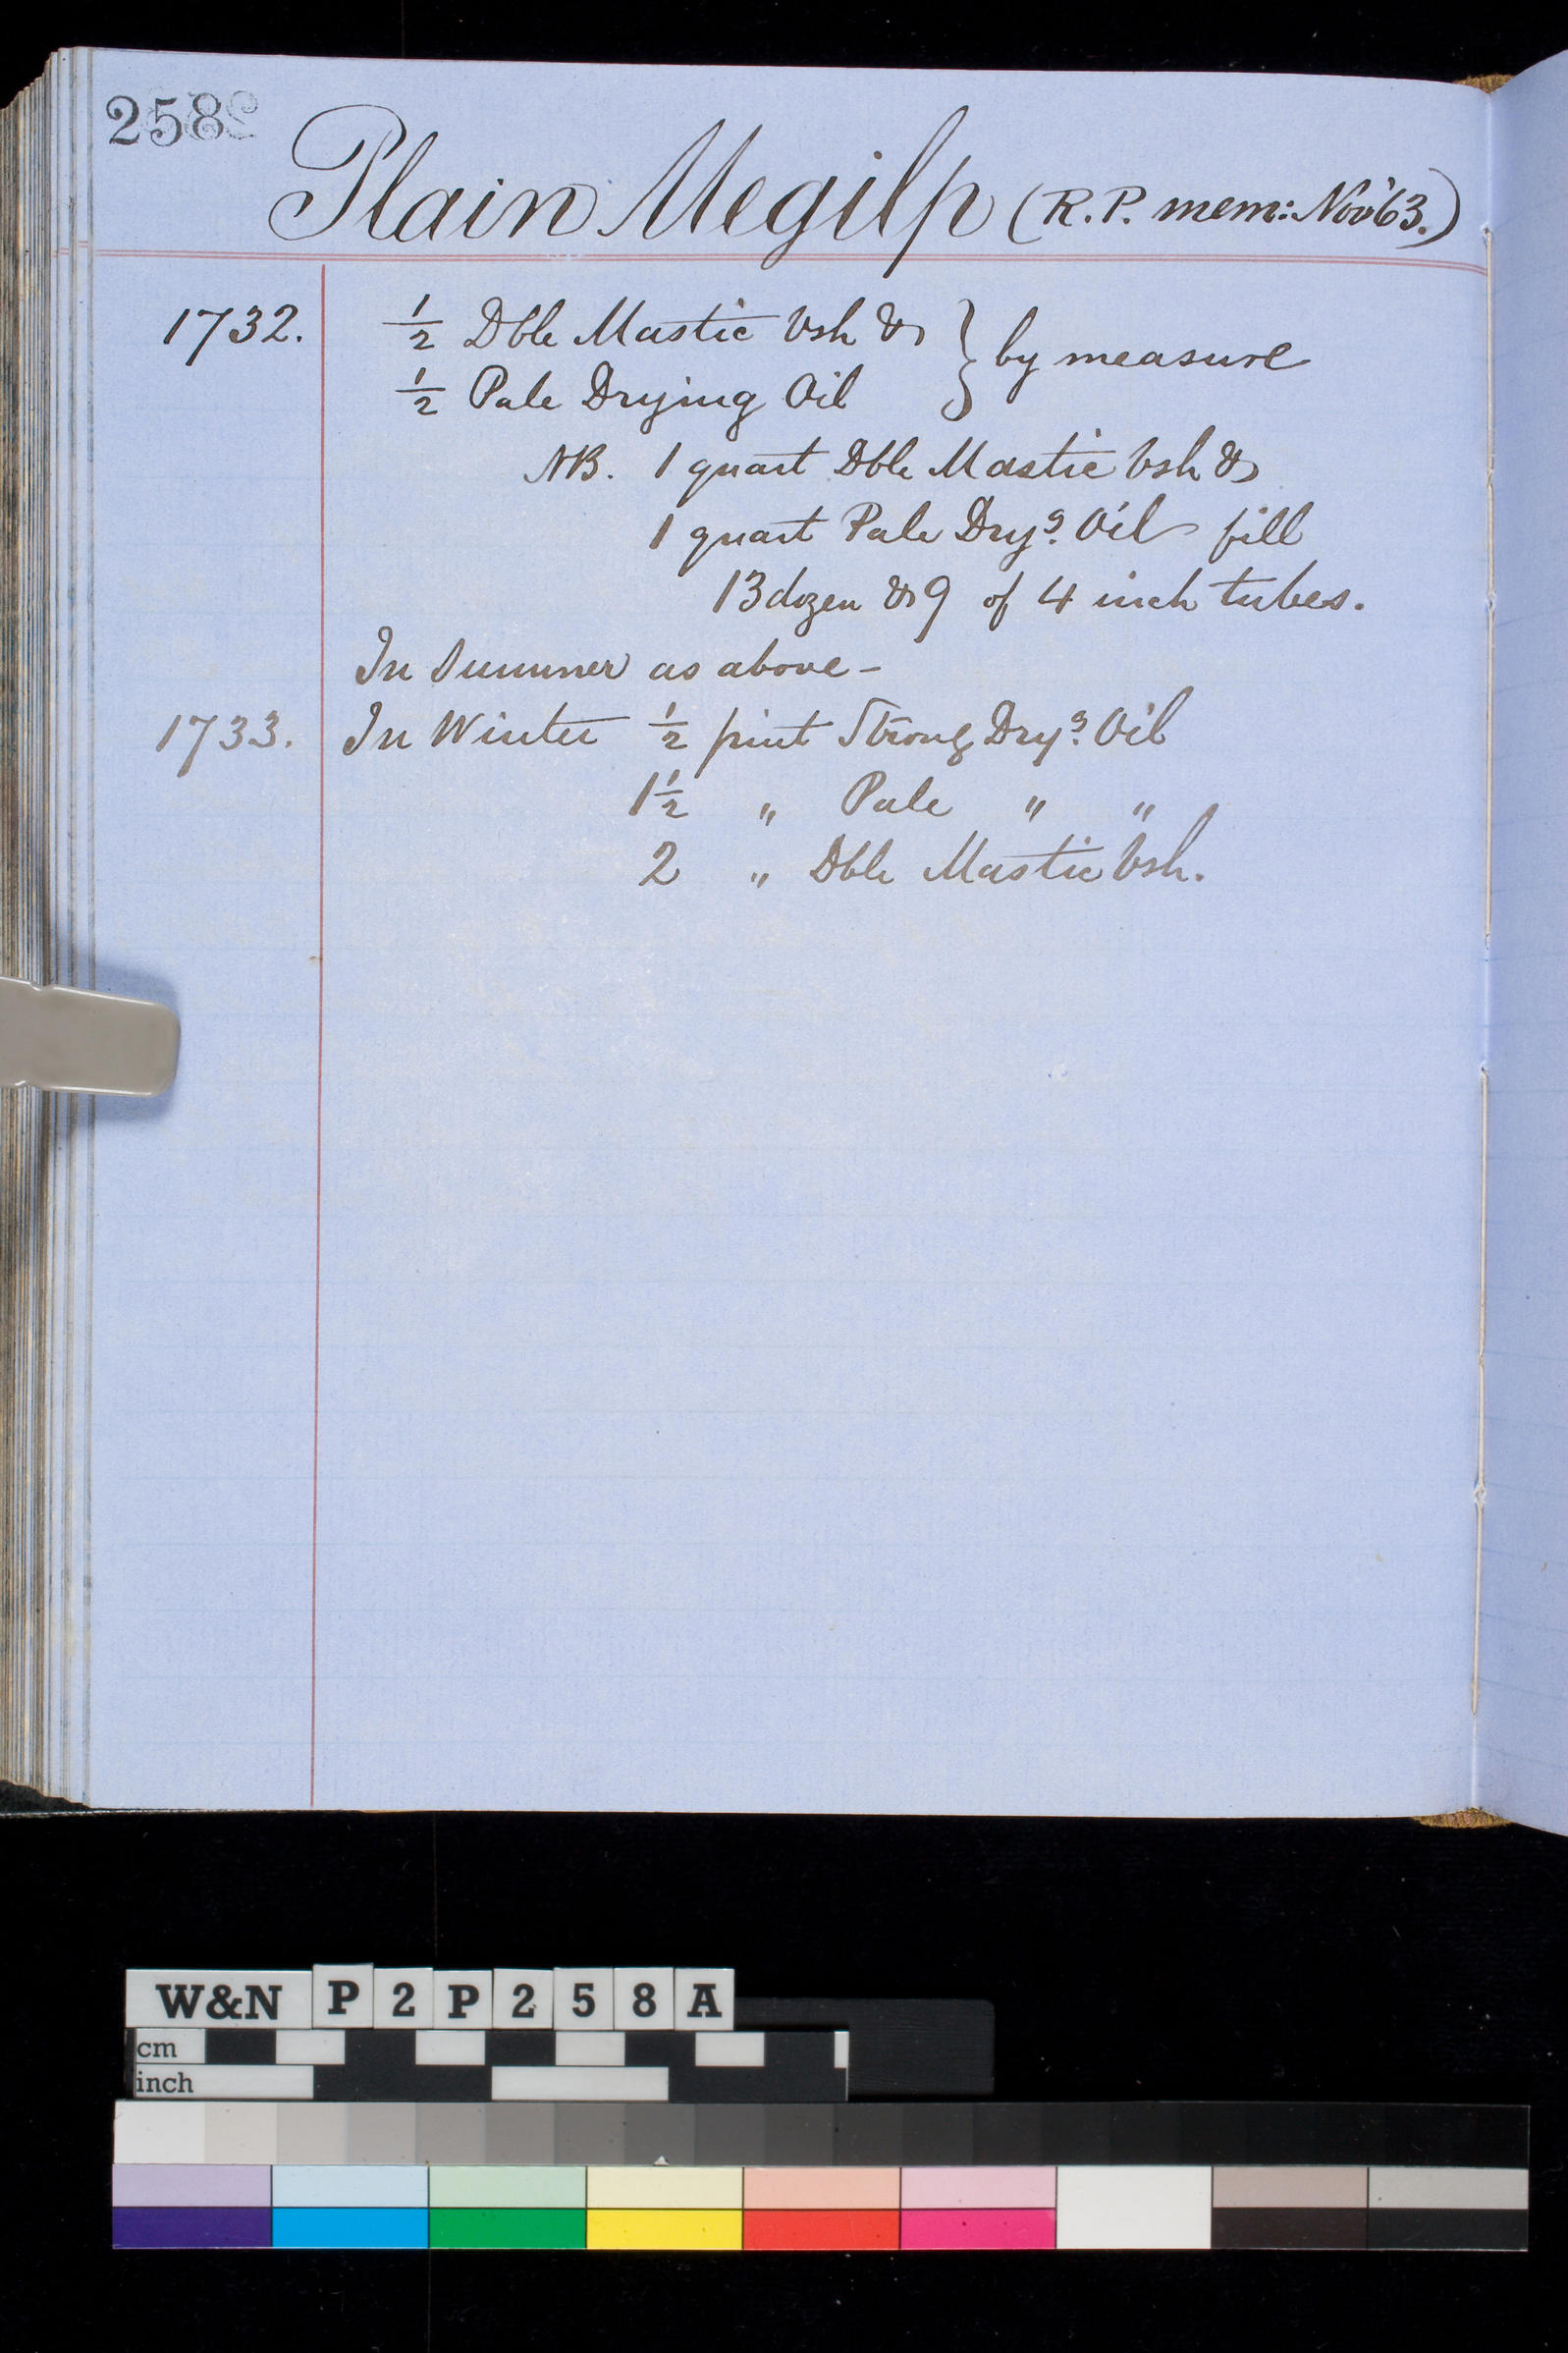 258
Plain Megilp (R.P. mem: Nov '63.)
1732. ½ Dble Mastic Vsh & } by measure
½ Pale Drying Oil
NB. 1 quart Dble Mastic Vsh &
1 quart Pale Dryg. Oil fill
13 dozen & 9 of 4 inch tubes.
In Summer as above -
1733. In Winter ½ pint Strong Dryg. Oil
1½ " Pale " "
2 " Dble Mastic Vsh.
W&N P2P258A
cm
inch